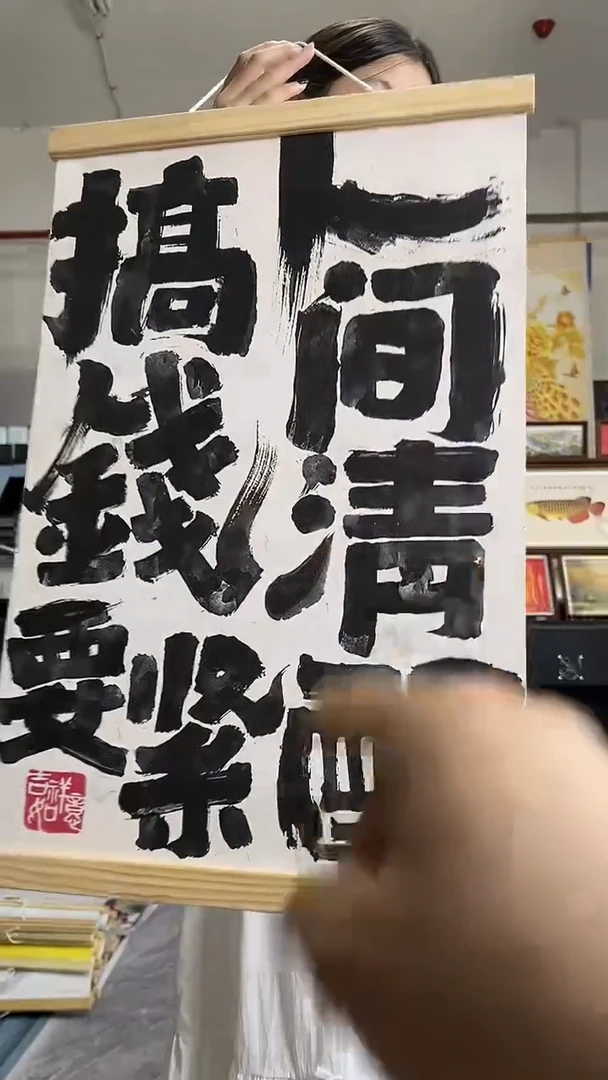 人间清醒
搞錢
要紧
吉祥
如意